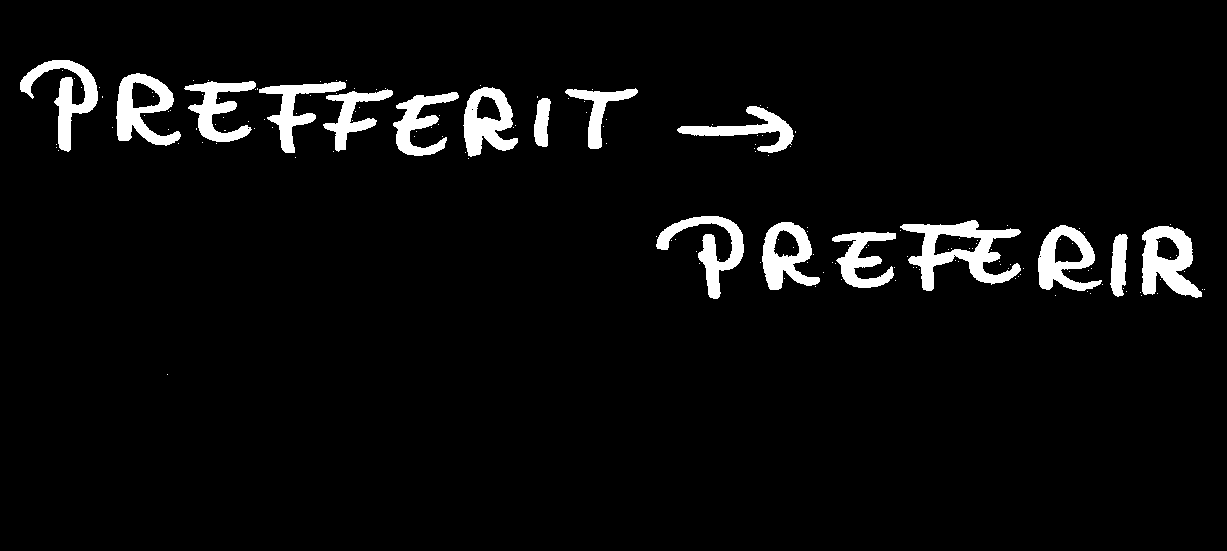 PREFFERIT →
PREFERIR